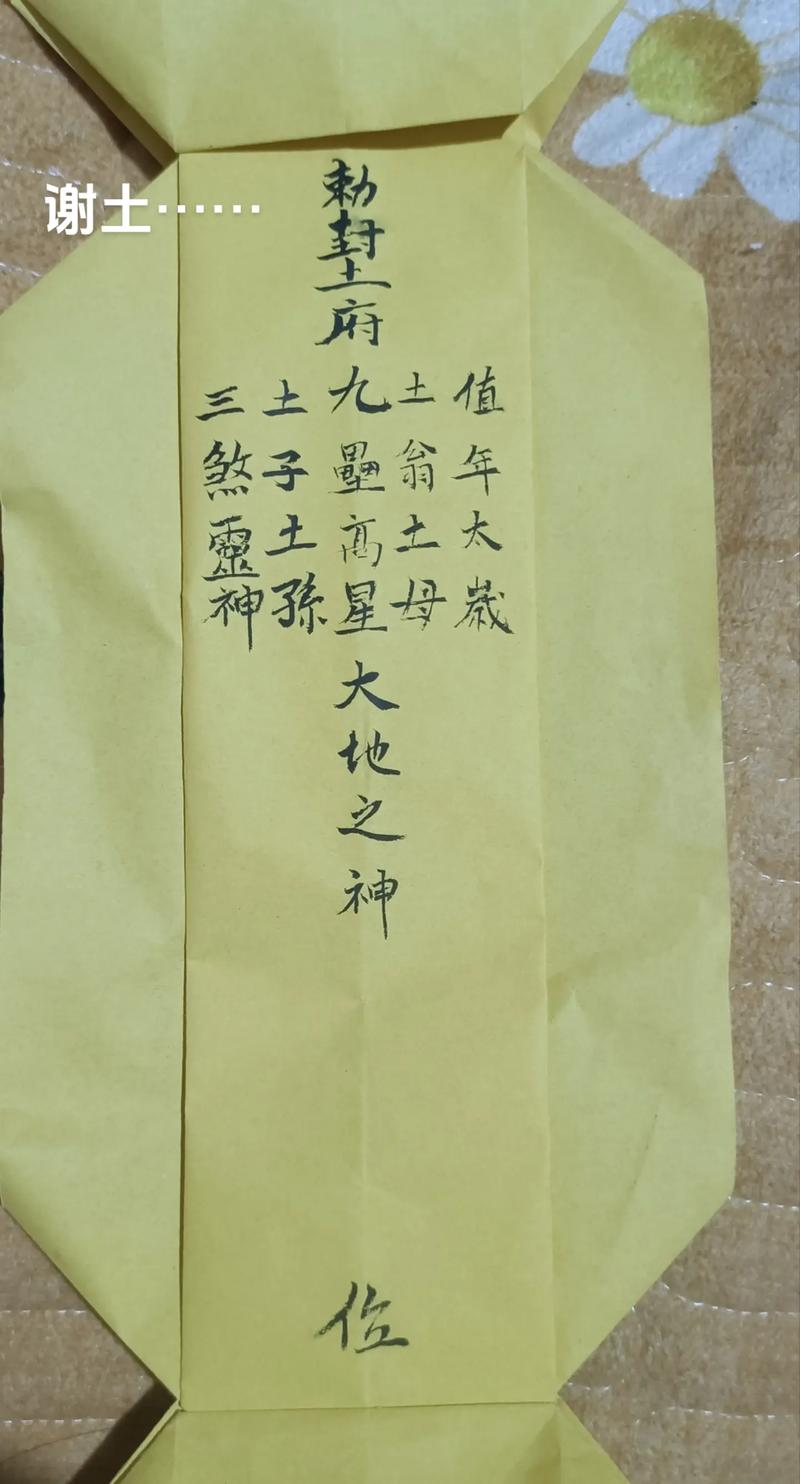 谢土……
勅封土府九壘高星大地之神
值年太歲
土翁土母
土子土孫
三煞靈神
位